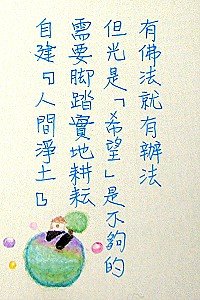 有佛法就有辦法
但光是「希望」是不夠的
需要脚踏實地耕耘
自建『人間淨土』